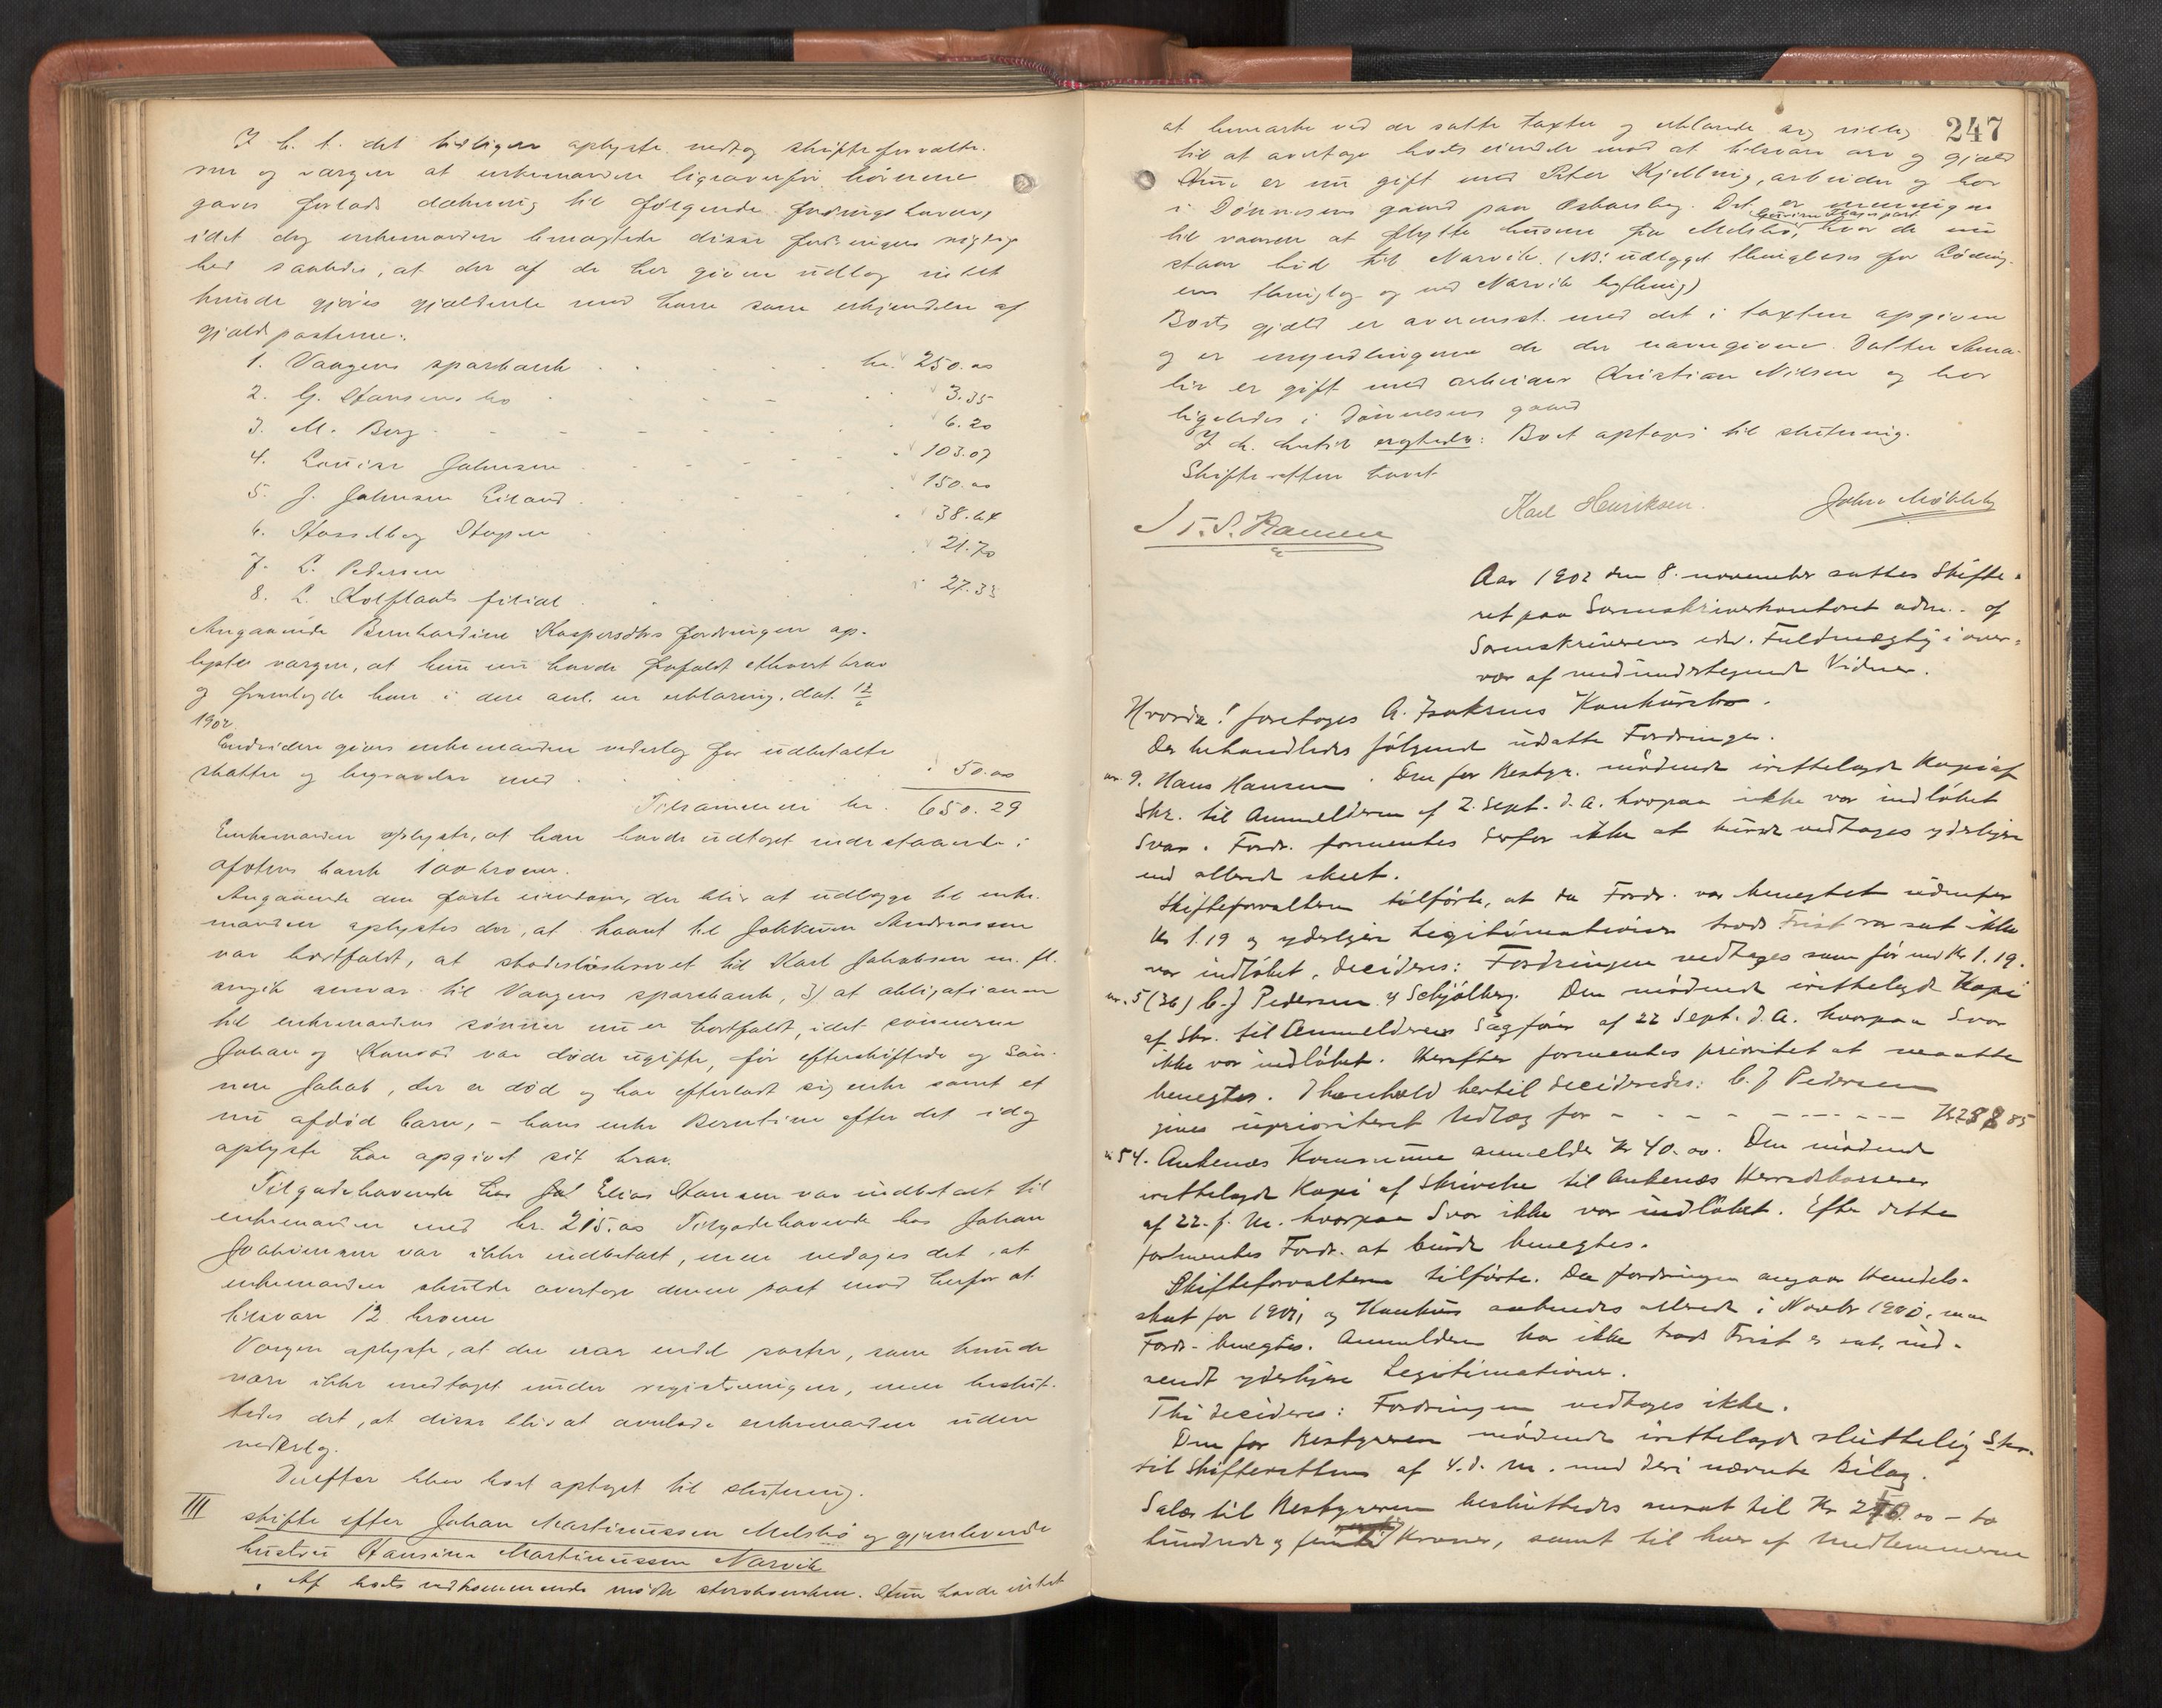 I h. t. det tidligere oplyste vedtog skifteforvalte-
ren og vergen at enkemanden ligeoverfor börnene
gaves forlods dækning til følgende fordringshavere,
idet dog enkemanden bemægtede disse fordringers rigtig-
hed saaledes, at der af de her givne udlæg intet
kunde gjöres gjældende mod ham som erkjendelse af
gjældsposterne:
1. Vaagens sparebank kr. 250.00
2. G. Hansens bo 3.35
3. M. Berg 6.20
4. Louise Johnsen 103.07
5. J. Johnsen Eiland 150.00
6. Hasselberg Stopen 38.64
7. L. Pedersen 21.70
8. L. Kolflaats filial 27.33
Angaaende Bernhardine Kaspersdtrs fordringer op-
lyste vergen, at hun nu havde frafaldt ethvert krav
og fremlagde han i den anl. en erklæring, dat. 12/6
1902.
Endvidere gives enkemanden vederlag for udbetalte
skatter og begravelse med 50.00
Tilsammen kr. 650.29
Enkemanden oplyste, at han havde udtaget indestaaende i
Afotens bank 100 kroner.
Angaaende den faste eiendom, der blir at udlægge til enke-
manden oplystes der, at havnet til Jokkum Andreassen
var bortfaldt, at skadeslösbrevet til Karl Jakobsen m. fl.
angik ansvar til Vaagens sparebank, 3) at obligationen
til enkemandens sönner nu er bortfaldt, idet sönnerne
Johan og Konrad var döde ugifte, för efterskiftede og Sön-
nen Jakob, der er död og har efterladt sig enke samt et
nu afdöd barn, - hans enke Berntine efter det idag
oplyste har opgivet sit krav.
Tilgodehavende hos Jul Elias Hansen var indbetalt til
enkemanden med kr. 215.00 Tilgodehavende hos Johan
Joakimsen var ikke indbetalt, men vedtages det, at
enkemanden skulde overtage denne post mod herfor at
tilsvare 12 kroner
Vergen oplyste, at der var endel poster, som kunde
være ikke medtaget under registreringen, men beslut-
tedes det, at disse blir at overlade enkemanden uden
vederlag.
Derefter blev boet optaget til slutning.
III skifte efter Johan Martinussen Melsbö og gjenlevende
hustru Hansine Martinussen Narvik
Af boets vedkommende mödte sterboenken. Hun havde intet
247
at bemærke ved de satte taxter og erklærede sig villig
til at overtage boets eiendele mod at tilsvare arv og gjæld
Hun er nu gift med Peter Kjelling, arbeider og bor
i Dönnesens gaard paa Oskarsborg. Det er meningen
til vaaren at flytte husene fra Melsbö, hvor de nu
staar hid til Narvik. (NB: udlægget thinglæses for Löding-
ens thinglag og ved Narvik bything)
Boets gjæld er overensst. med det i taxten opgivne
og er myndlingerne de der navngivne. Datter Ama-
lie er gift med arbeider Kristian Nilsen og bor
ligeledes i Dönnesens gaard
I h. hertil eragtedes: Boet optages til slutning.
Skifteretten hævet
J. S. Hansen Karl Henriksen. John Möklebÿ
Aar 1902 den 8. november sattes Skifte-
ret paa Sorenskriverkontoret adm. af
Sorenskriverens edsv. Fuldmægtig i over-
vær af medundertegnede Vidner.
Hvorda! foretoges A. Isaksens Konkursbo.
Der behandledes følgende udsatte Fordringer.
nr. 9. Hans Hansen. Den for Bestyr. mödende irettelagde Kopi af
Skr. til Anmelderen af 2. Sept. d. A. hvorpaa ikke var indløbet
Svar. Fordr. formentes derfor ikke at kunde vedtages yderligere
end allerede skeet.
Skifteforvalteren tilførte, at da Fordr. var benegtet udenfor
Kr 1.19 og yderligere Legitimationer trods Frist var sat ikke
var indløbet, decideres: Fordringen vedtages som før med Kr 1.19.
nr. 5 (36) C. J Pedersen v/ Schjølberg. Den mødende irettelagde Kopi
af Skr. til Anmelderens Sagfører af 22 Sept. d. A. hvorpaa Svar
ikke var indløbet. Herefter formentes prioritet at maatte
benegtes. I henhold hertil decideredes: C. J Pedersen
gives uprioriteret Udlæg for - - - - - - - - Kr 288 85
nr 54. Ankenæs Kommune anmelder Kr 40.00. Den mødende
irettelagde Kopi af Skrivelse til Ankenæs Herredskasserer
af 22. f. M. hvorpaa Svar ikke var indløbet. Efter dette
formentes Fordr. at burde benegtes.
Skifteforvalteren tilførte. Da fordringen angaar Handels-
skat for 1901, og Konkurs aabnedes allerede i Novbr 1900, maa
Fordr. benegtes. Anmelderen har ikke trods Frist er sat, ind-
sendt yderligere Legitimationer.
Thi decideres: Fordringen vedtages ikke.
Den for Bestyreren mødende irettelagde sluttelig Skr.
til Skifteretten af 4. d. M. med deri nævnte Bilag.
Salær til Bestyreren besluttedes ansat til Kr 250.00 - to
hundrede og femti Kroner, samt til hver af Medlemmerne